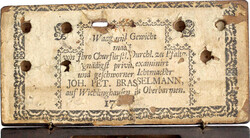 Waag und Gewicht
macht
Ihro Churfürstl. Durchl. zu Pfaltz
gnädigst privil. examinirt
und geschworner
JOH. PET. BRASSELMANN,
auf Wichlinghausen in Oberbarmen.
17